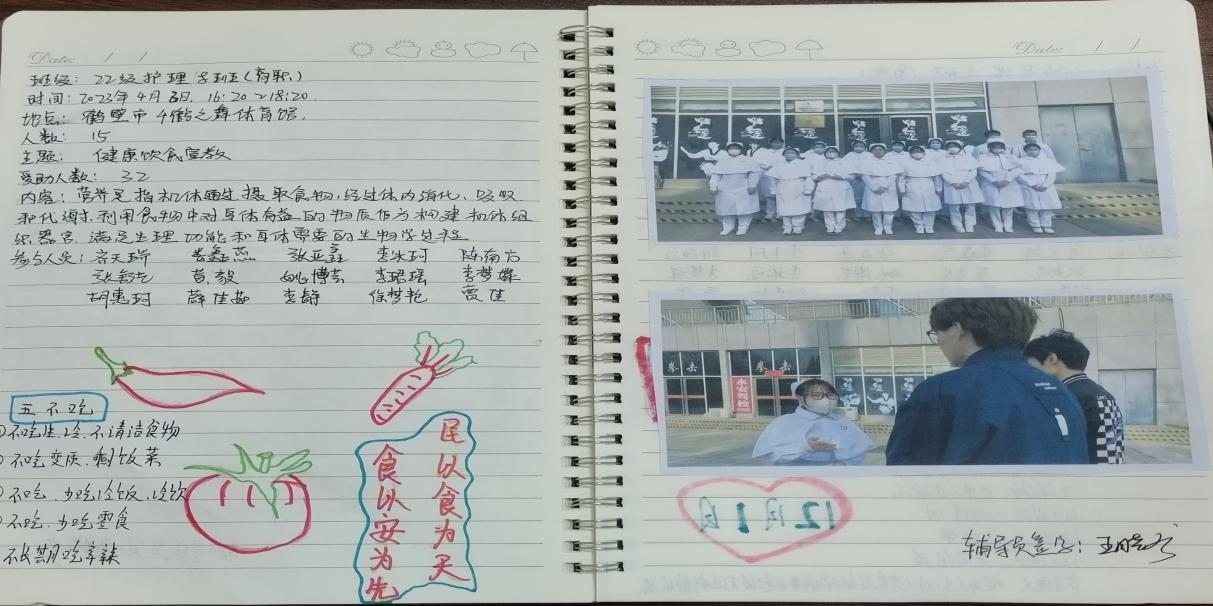 Date: / /
班级: 22级护理 班(高职)
时间: 2023年4月6日, 16:20~18:20.
地点: 鹤壁市 鹤之舞体育馆.
人数: 15
主题: 健康饮食宣教
受助人数: 32
内容: 营养是指机体通过摄取食物,经过体内消化、吸收
和代谢,利用食物中对身体有益的物质作为构建机体组
织器官、满足生理功能和身体需要的生物学过程.
参与人员: 张亚鑫 李冰珂 陈南方
姚博 李珺瑶 李梦
胡惠珂 薛佳茹 李静 徐梦艳 贾佳
五不吃
不吃生、冷、不清洁食物
不吃变质、剩饭菜
不吃、少吃冷饭、冷饮
不吃、少吃零食
不长期吃辛辣
民以食为天
食以安为先
Date: / /
拳击
拳击
永安驾校
12月1日
辅导员签字: